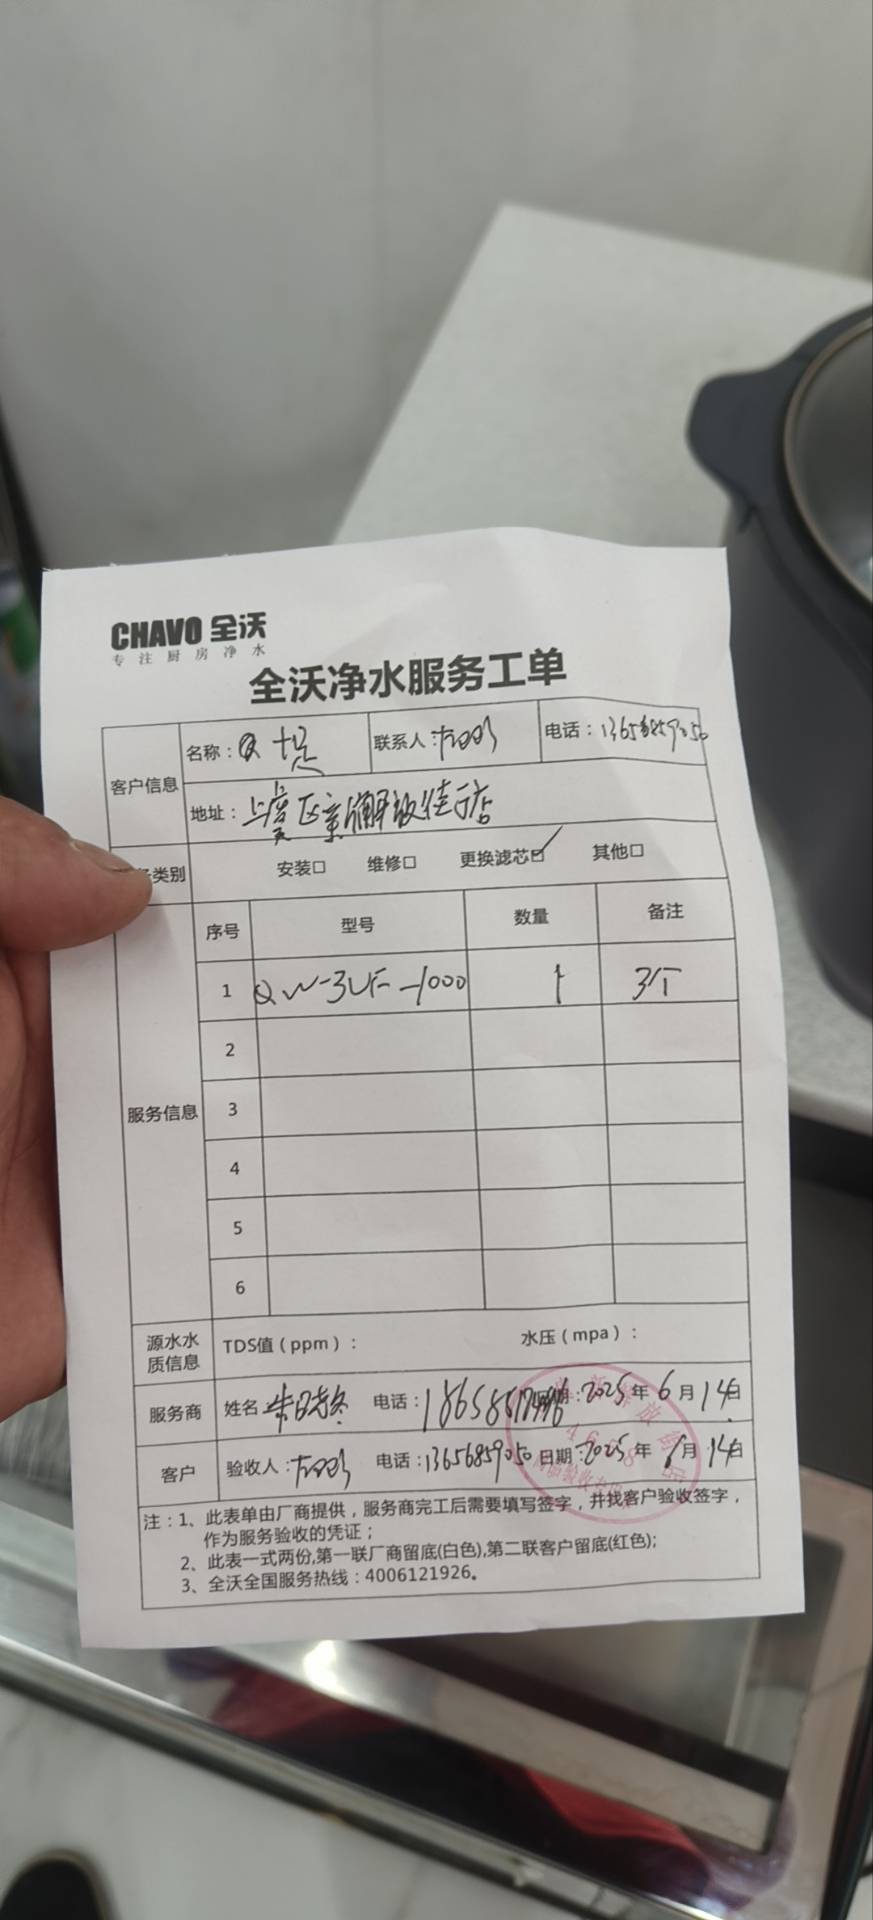 CHAVO 全沃
专注厨房净水
全沃净水服务工单
客户信息
名称： 联系人： 电话：13656859050
地址：上虞区 解放 店
类别 安装□ 维修□ 更换滤芯☑ 其他□
服务信息
序号 型号 数量 备注
1 QW-3UF-1000 1 3个
2
3
4
5
6
源水水质信息 TDS值（ppm）： 水压（mpa）：
服务商 姓名 电话： 2025年6月14日
客户 验收人： 电话：13656859050 日期：2025年6月14日
注：1、此表单由厂商提供，服务商完工后需要填写签字，并找客户验收签字，
作为服务验收的凭证；
2、此表一式两份,第一联厂商留底(白色),第二联客户留底(红色);
3、全沃全国服务热线：4006121926。